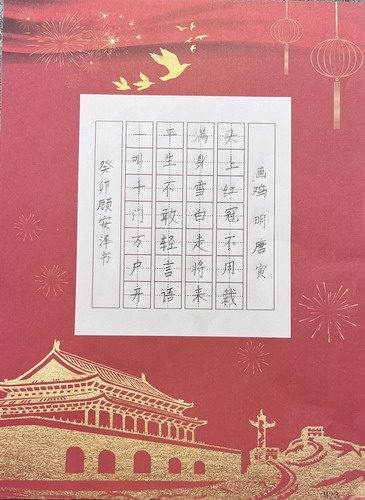 画鸡 明 唐寅
头上红冠不用裁
满身雪白走将来
平生不敢轻言语
一叫千门万户开
癸卯顾安泽书
M23